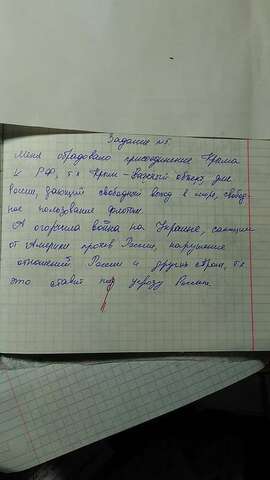 Задание №5
Меня обрадовало присоединение Крыма
к РФ, т.к Крым - важный объект для
России, дающий свободный выход в море, свобод-
ное пользование флотом.
А огорчила война на Украине, санкции
от Америки против России, нарушение
отношений России и других стран, т.к
это ставит под угрозу Россию.